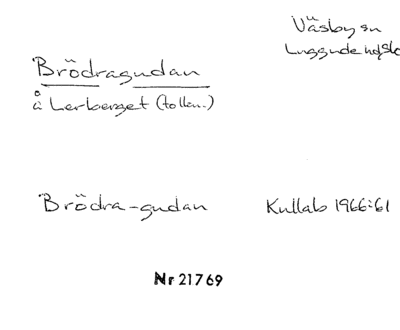 Väsby sn
Luggude hd, Sk
Brödragudan
å Lerberget (tollan.)
Brödra-gudan
Kullab 1966:61
Nr 21769